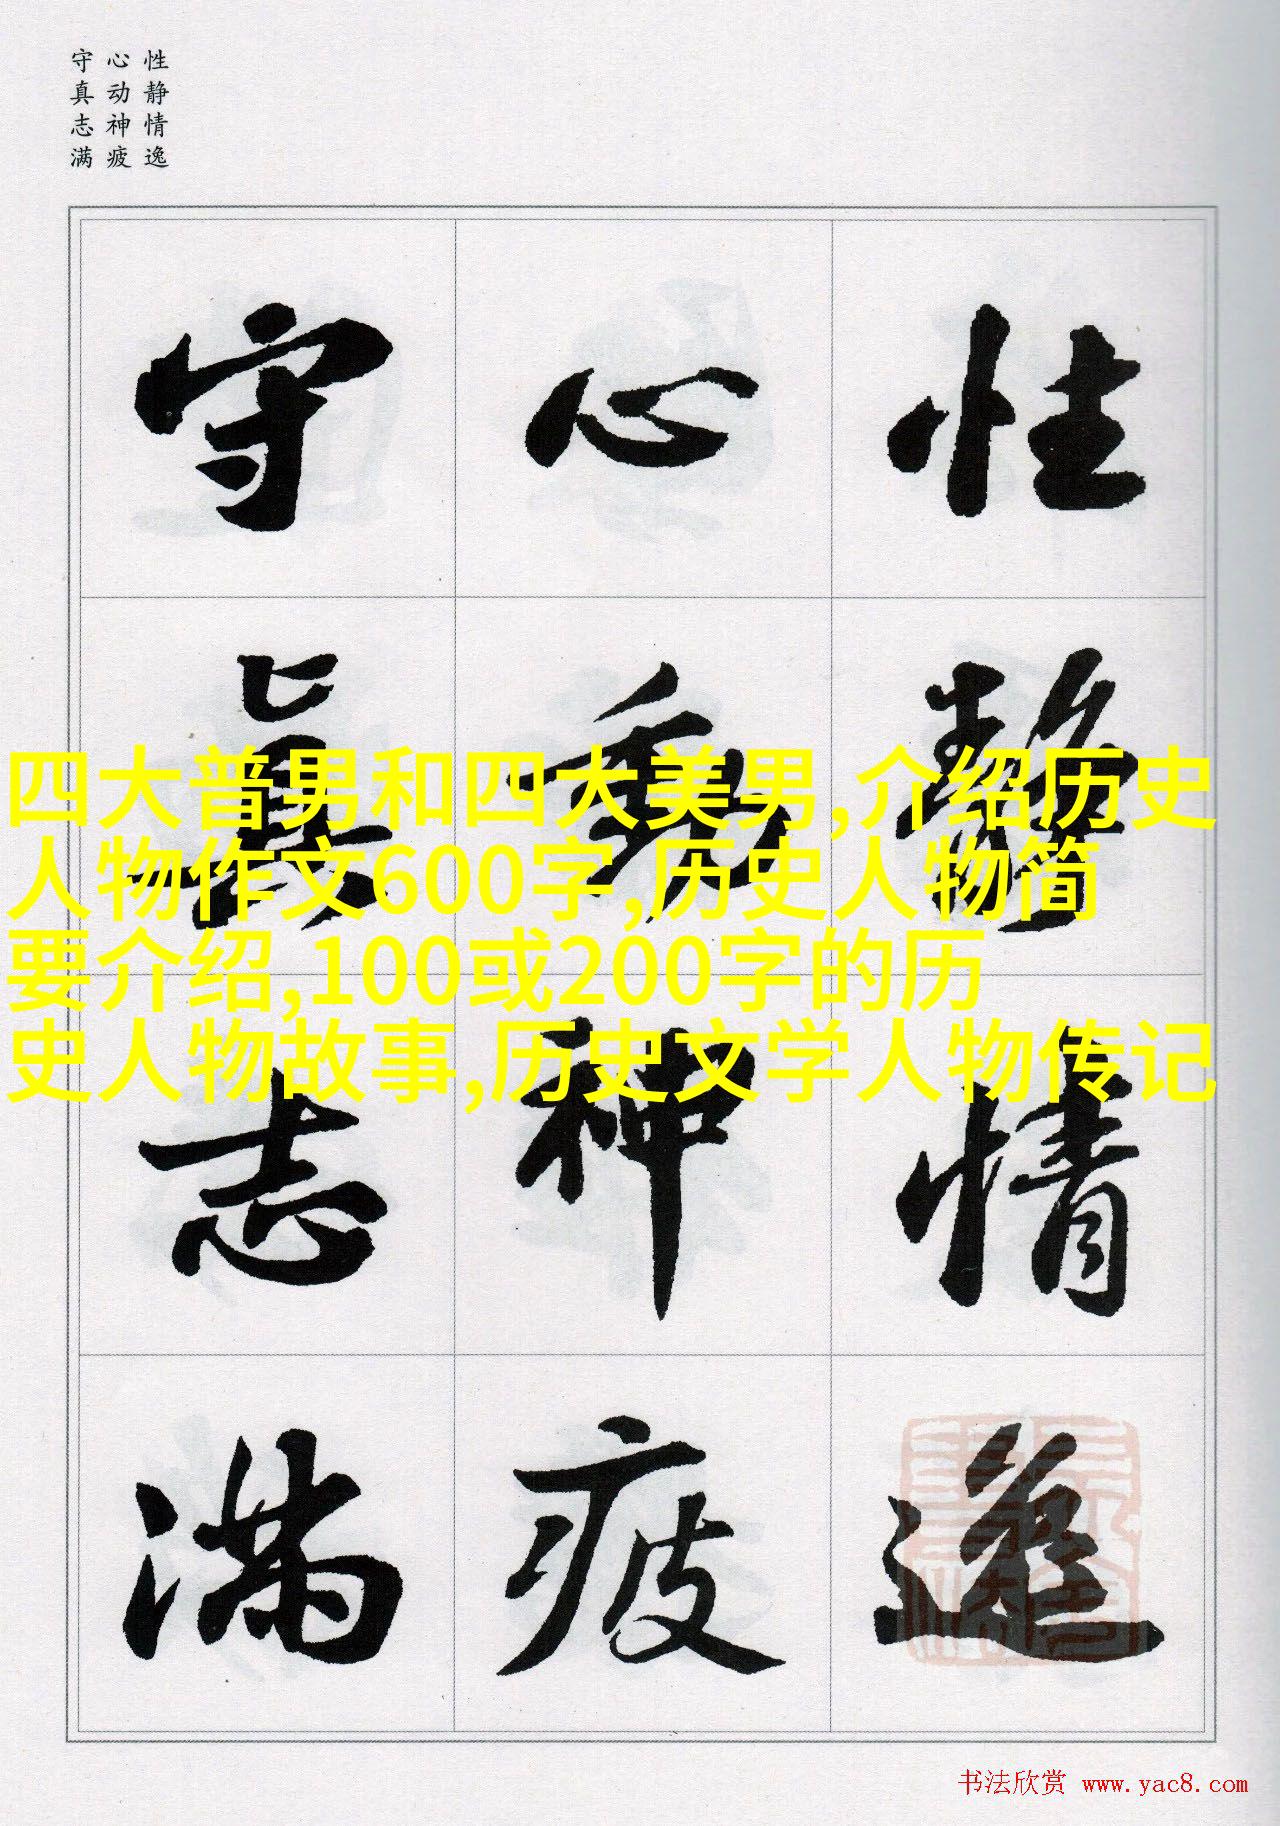 性静情逸
心动神疲
守真志满
性静情逸
心動神疲
守真志满
四大普男和四大美男,介绍历史
人物作文600字,历史人物简
要介绍,100或200字的历
史人物故事,历史文学人物传记
书法欣赏 www.yac8.com